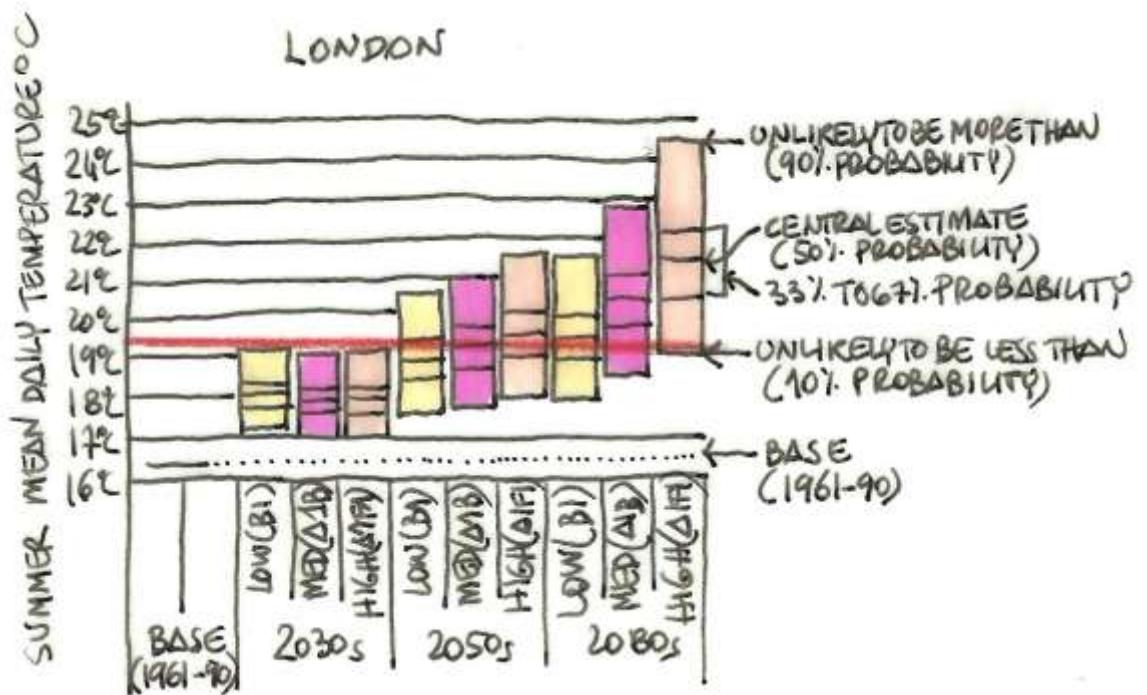 LONDON
SUMMER MEAN DAILY TEMPERATURE °C
25°C
24°C
23°C
22°C
21°C
20°C
19°C
18°C
17°C
16°C
UNLIKELY TO BE MORE THAN
(90% PROBABILITY)
CENTRAL ESTIMATE
(50% PROBABILITY)
33% TO 67% PROBABILITY
UNLIKELY TO BE LESS THAN
(10% PROBABILITY)
BASE
(1961-90)
LOW(B1)
MED(A1B)
HIGH(A1FI)
LOW(B1)
MED(A1B)
HIGH(A1FI)
LOW(B1)
MED(A1B)
HIGH(A1FI)
BASE
(1961-90)
2030s
2050s
2080s